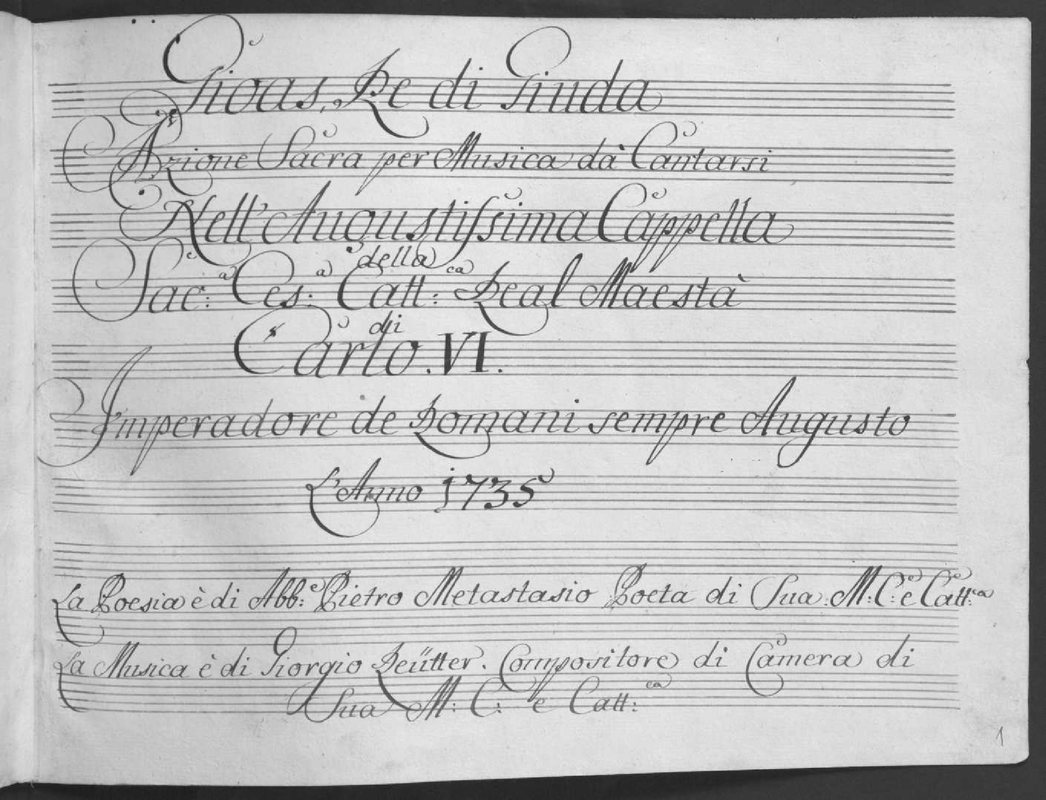 Gioas, Re di Giuda
Azione Sacra per Musica dà Cantarsi
Nell'Augustissima Cappella
della
Sac:ᵃ Ces:ᵃ Catt:ᶜᵃ Real Maestà
di
Carlo. VI.
Imperadore de Romani sempre Augusto
L'Anno 1735
La Poesia è di Abb:ᵉ Pietro Metastasio Poeta di Sua M: C:ᵉ e Catt:ᶜᵃ
La Musica è di Giorgio Reütter. Compositore di Camera di
Sua M: C: e Catt:ᶜᵃ
1